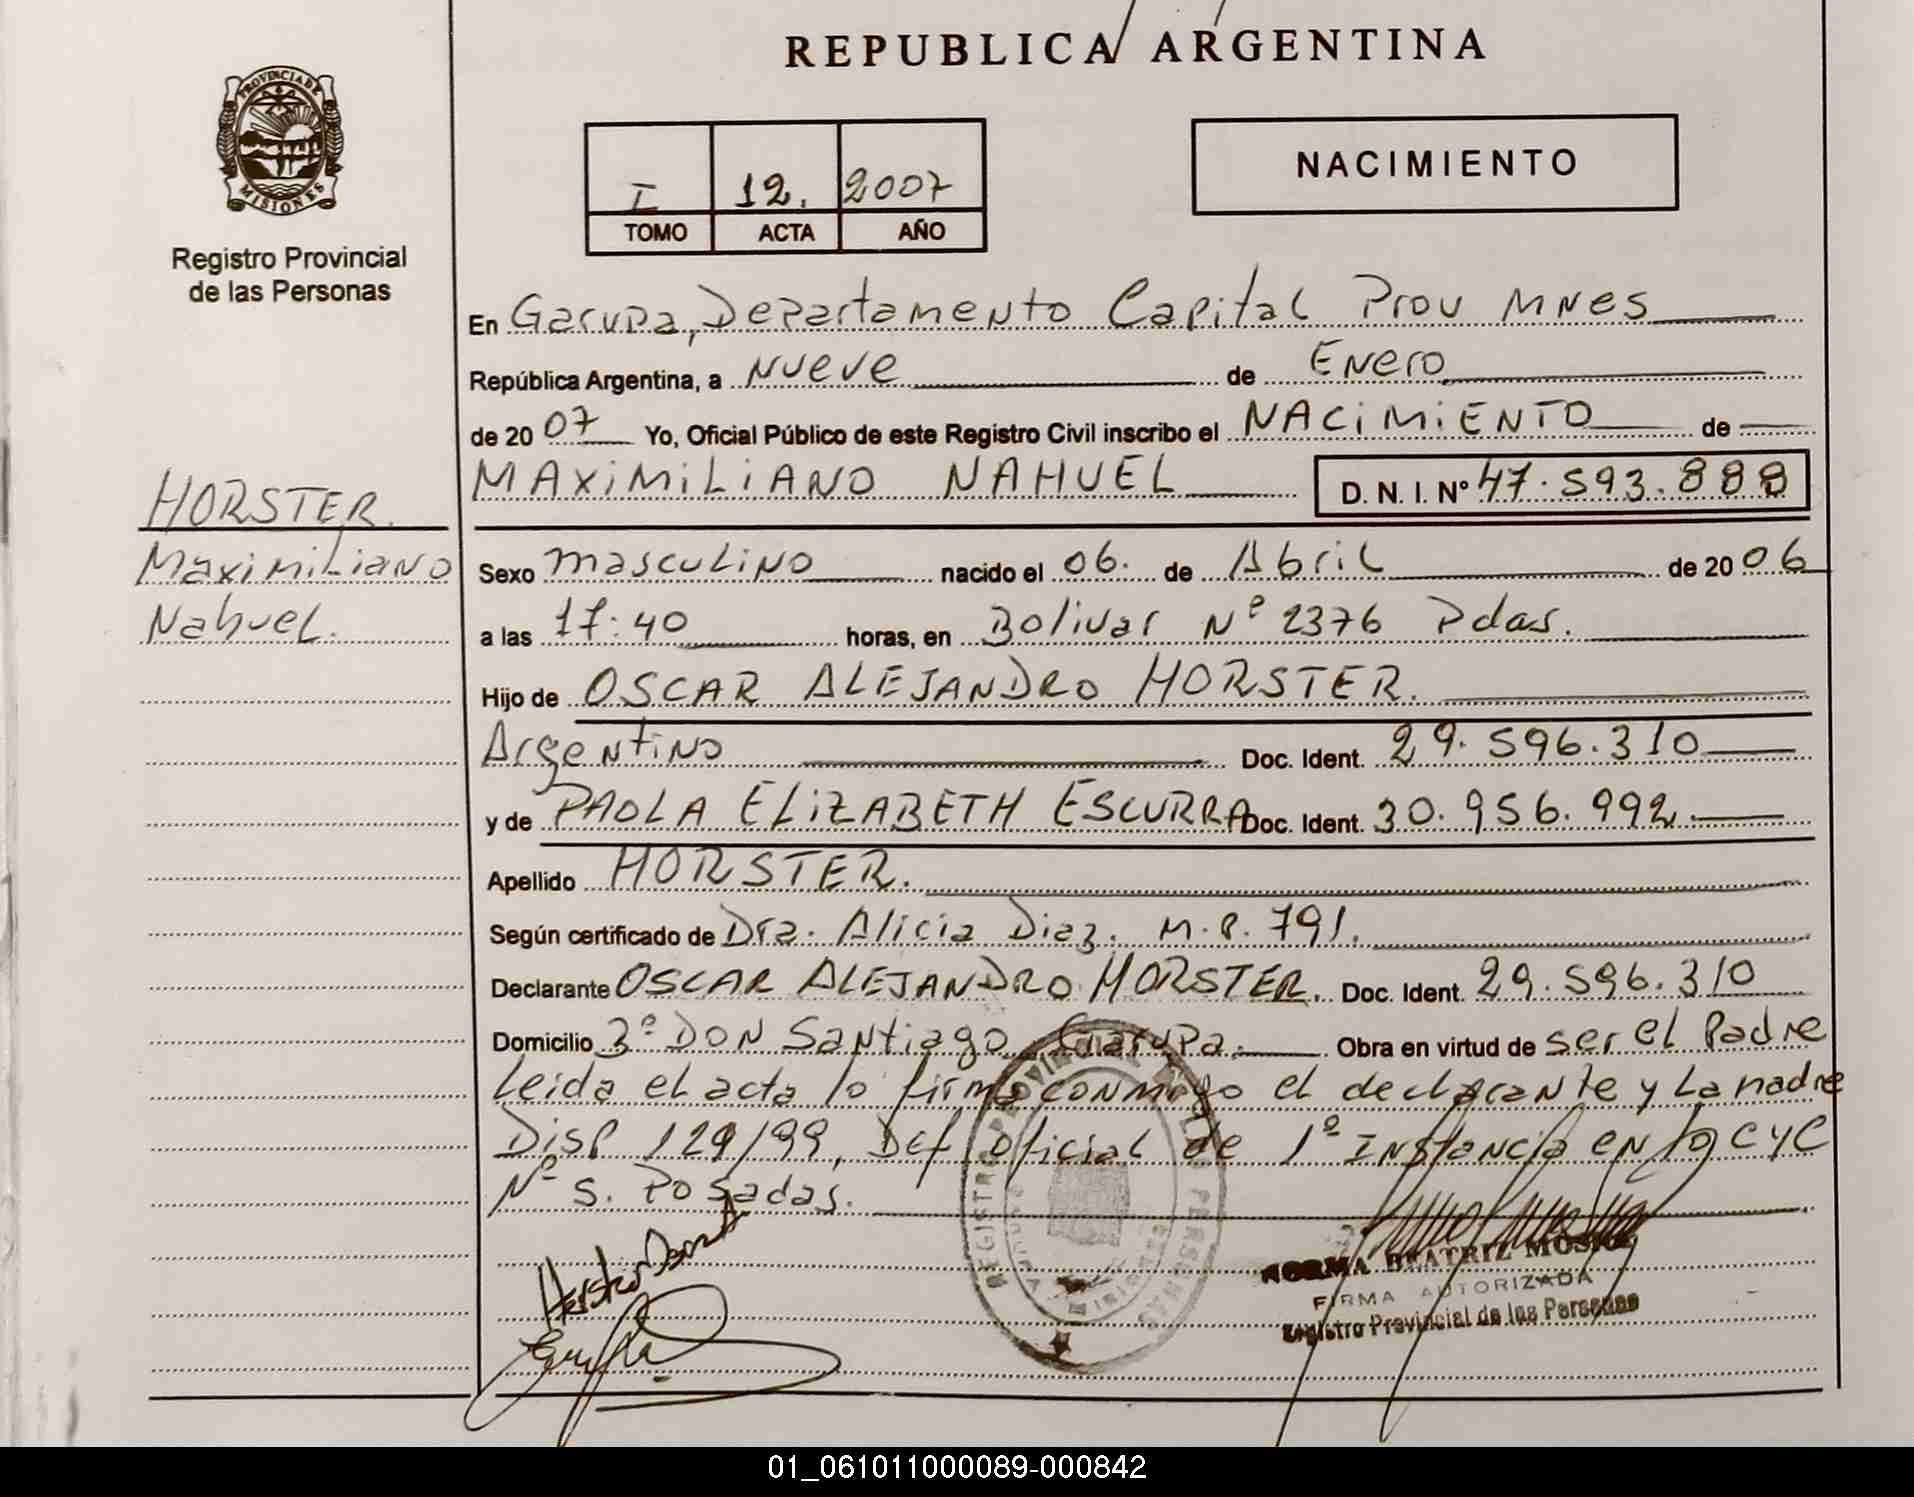 REPUBLICA ARGENTINA
PROVINCIA DE
MISIONES
Registro Provincial
de las Personas
I 12. 2007
TOMO ACTA AÑO
NACIMIENTO
En Garupa, Departamento Capital Prov MNes
República Argentina, a Nueve de Enero
de 2007 Yo, Oficial Público de este Registro Civil inscribo el NACIMIENTO de
MAXIMILIANO NAHUEL D. N. I. Nº 47.593.888
HORSTER.
Maximiliano
Nahuel.
Sexo masculino nacido el 06. de Abril de 2006
a las 17:40 horas, en Bolivar Nº 2376 Pdas.
Hijo de OSCAR ALEJANDRO HORSTER.
Argentino Doc. Ident. 29.596.310
y de PAOLA ELIZABETH ESCURRA Doc. Ident. 30.956.992
Apellido HORSTER.
Según certificado de Dra. Alicia Diaz. M.P. 791.
Declarante OSCAR ALEJANDRO HORSTER. Doc. Ident. 29.596.310
Domicilio Bº DON Santiago Garupa. Obra en virtud de ser el Padre
Leida el acta lo firma conmigo el declarante y la madre
Disp 129/99, Def oficial de 1º Instancia en lo C y C
Nº 5. Posadas.
REGISTRO PROVINCIAL DE LAS PERSONAS
NORMA BEATRIZ
FIRMA AUTORIZADA
Registro Provincial de las Personas
01_061011000089-000842